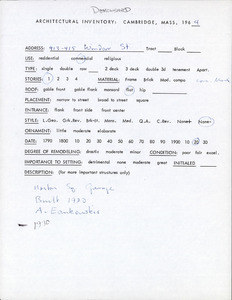 DEMOLISHED
ARCHITECTURAL INVENTORY: CAMBRIDGE, MASS, 196
ADDRESS: Windsor St Tract Block
USE: residential commercial religious
TYPE: single double row 2 deck 3 deck double 3d tenement Apart.
STORIES: 1 2 3 4 5 MATERIAL: Frame Brick Mod. comps
ROOF: gable front gable flank mansard flat hip
PLACEMENT: narrow to street broad to street square
ENTRANCE: side front side front center
STYLE: L.Geo. Gk.Rev. Brk-It. Mans. Med. Q.A. C.Rev. None
ORNAMENT: little moderate elaborate
DATE: 1790 1800 10 20 30 40 50 60 70 80 90 1900 10 20 30
DEGREE OF REMODELING: drastic moderate minor CONDITION: poor fair excel.
IMPORTANCE TO SETTING: detrimental none moderate great INITIALED
DESCRIPTION: (for more important structures only)
Garage
Built
A.